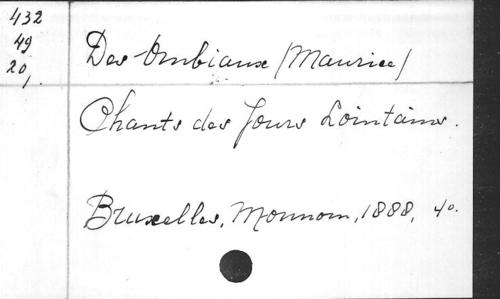 432
49
20,
Des Ombiaux (Maurice)
Chants des Jours Lointains.
Bruxelles, Monnom, 1888, 4o.